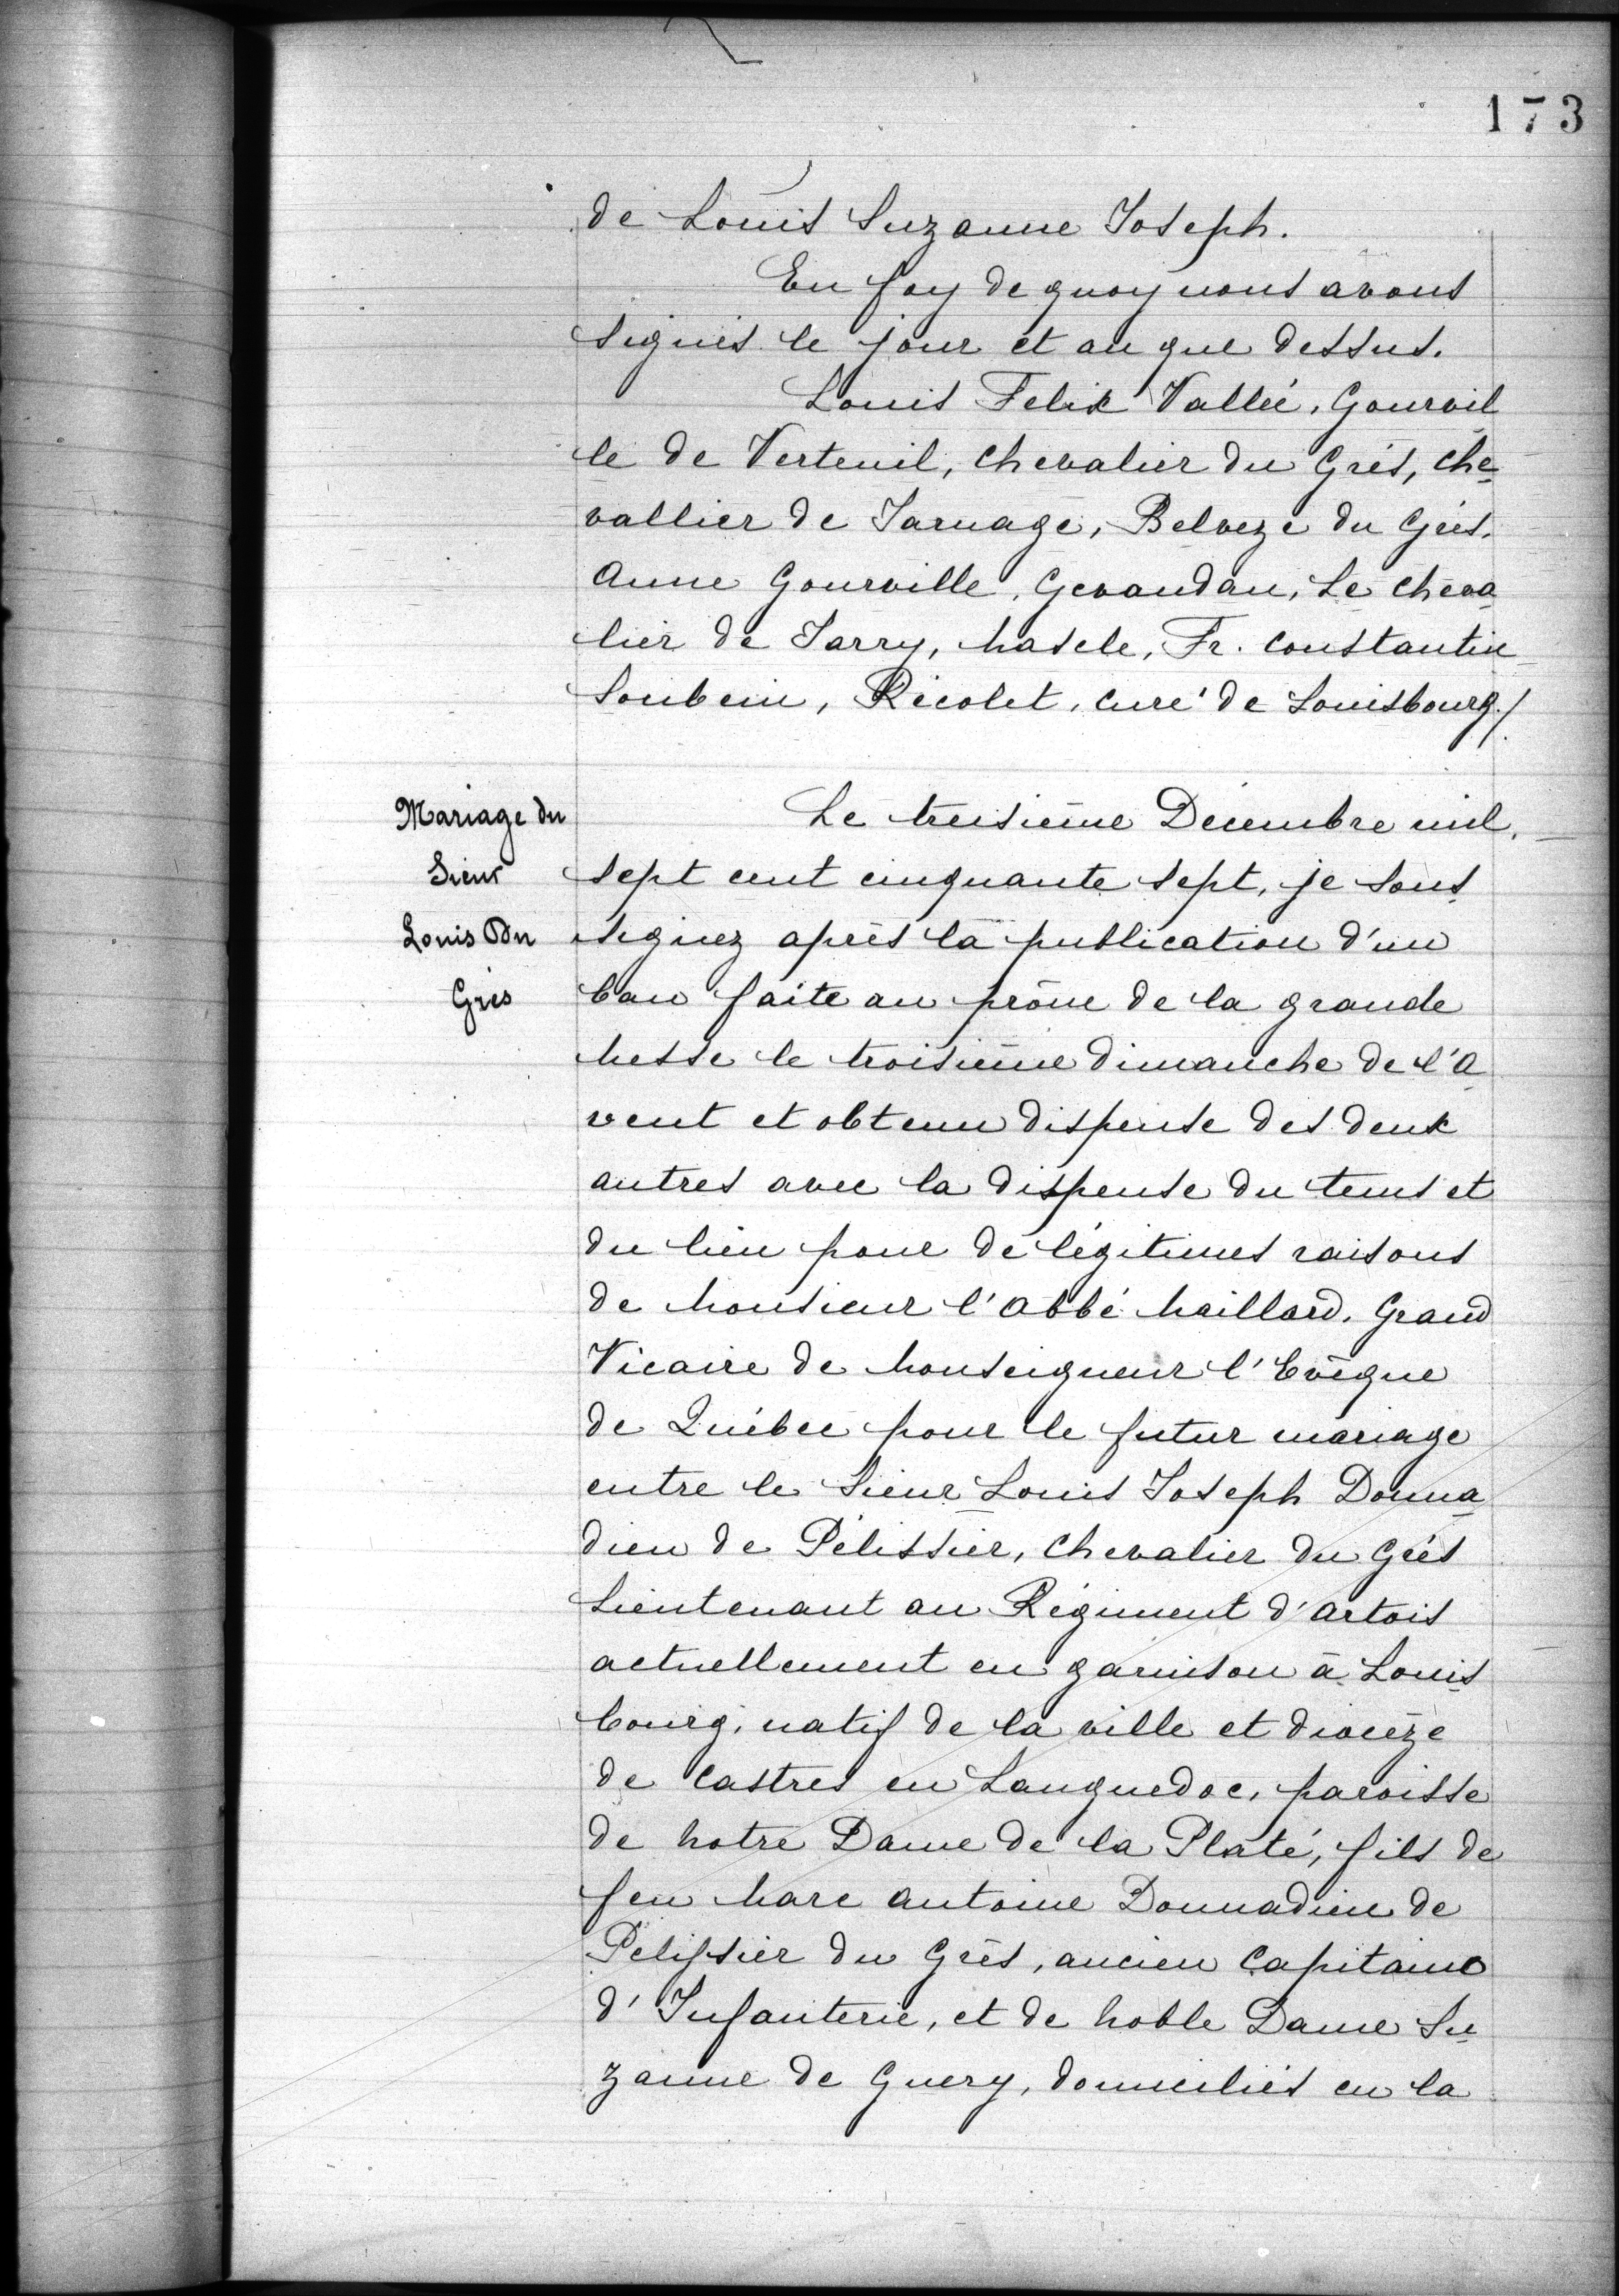 173
de Louis Suzanne Joseph.
En foy de quoy nous avons
signés le jour et an que dessus.
Louis Felix Vallée, Gourvil
le de Verteuil, Chevalier du Grés, Che-
vallier de Jarnage, Belveze du Grés.
Anne Gourville, Gevaudan, Le Cheva
lier de Jarry, Mascle, Fr. Constantin
Soubenn, Récolet, curé de Louisbourg./.
Mariage du
Sieur
Louis Du
Grès
Le treisième Décembre mil.
sept cent cinquante sept, je sous
signez après la publication d'un
ban faite au prône de la grande
Messe le troisième dimanche de l'A
vent et obtenu dispense des deux
autres avec la dispense du tems et
du lieu pour de légitimes raisons
de Monsieur l'Abbé Maillard, Grand
Vicaire de Monseigneur l'Evêque
de Québec pour le futur mariage
entre le Sieur Louis Joseph Donna
dieu de Pélissier, Chevalier du Grés
Lieutenant au Régiment d'Artois
actuellement en garnison à Louis
bourg, natif de la ville et diocèze
de Castres en Languedoc, paroisse
de Notre Dame de la Platé, fils de
feu Marc Antoine Donnadieu de
Pelissier du Grès, ancien Capitaine
d'Infanterie, et de Noble Dame Su
zanne de Guery, domiciliés en la